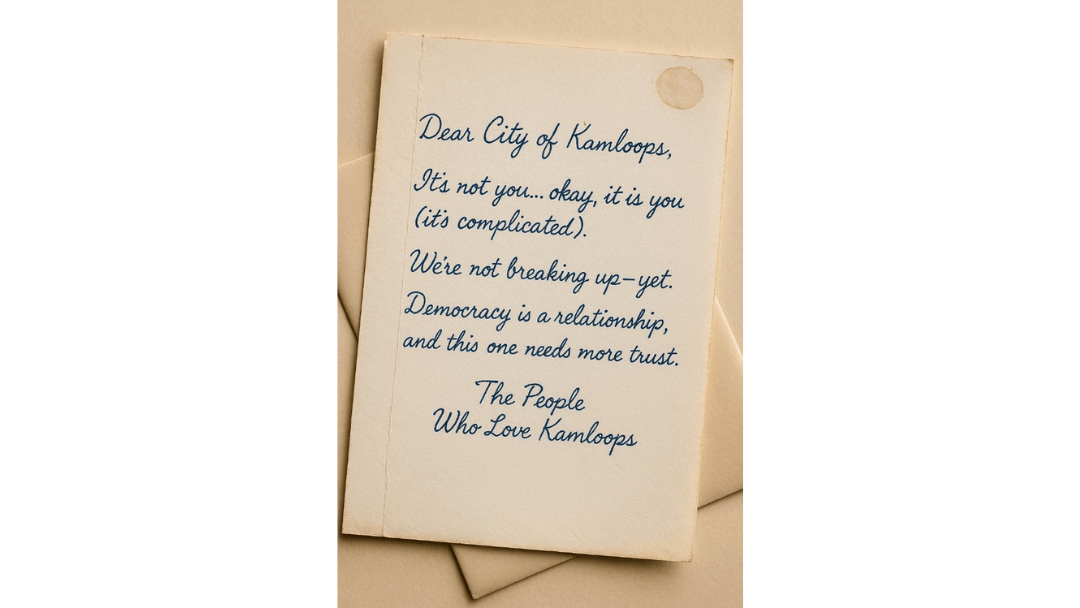 Dear City of Kamloops,
It's not you... okay, it is you
(it's complicated).
We're not breaking up—yet.
Democracy is a relationship,
and this one needs more trust.
The People
Who Love Kamloops